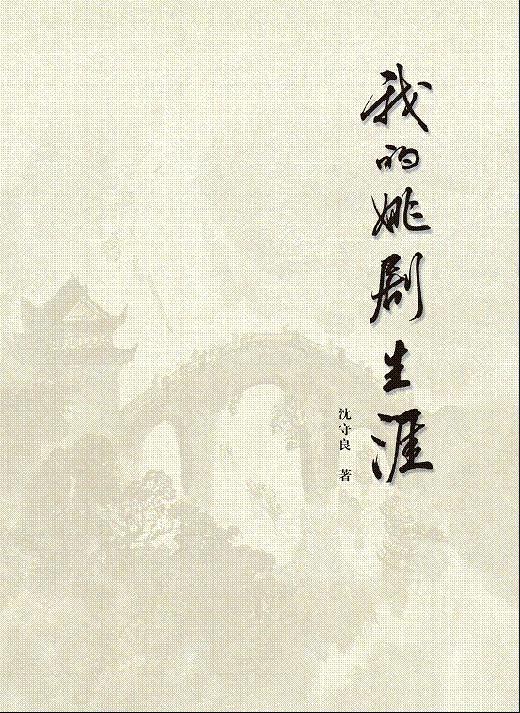 我的姚剧生涯
沈守良 著